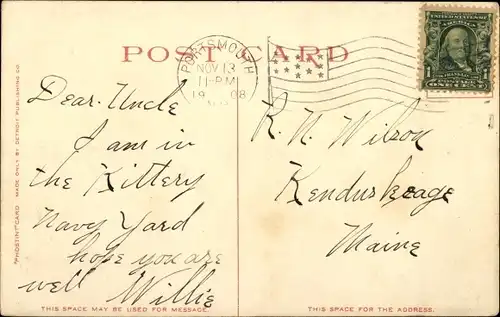 POST CARD
PORTSMOUTH
NOV 13
11-PM
1908
UNITED STATES OF AMERICA
1
Dear. Uncle
I am in
the Kittery
Navy Yard
hope you are
well Willie
R. N. Wilson
Kenduskeage
Maine
"PHOSTINT" CARD MADE ONLY BY DETROIT PUBLISHING CO.
THIS SPACE MAY BE USED FOR MESSAGE.
THIS SPACE FOR THE ADDRESS.